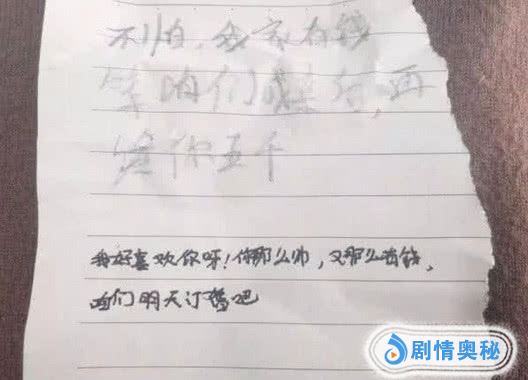 不怕,我家有钱
等咱们成婚后,再
给你五千
我好喜欢你呀!你那么帅,又那么有钱,
咱们明天订婚吧
剧情奥秘